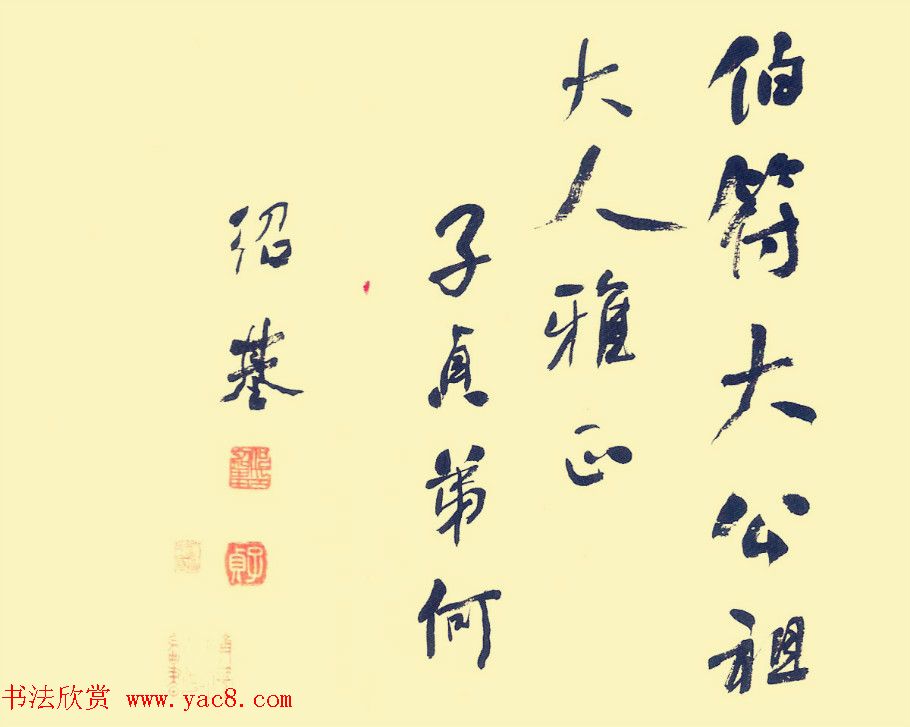 伯符大公祖
大人雅正
子貞弟何
紹基
子貞
书法欣赏 www.yac8.com